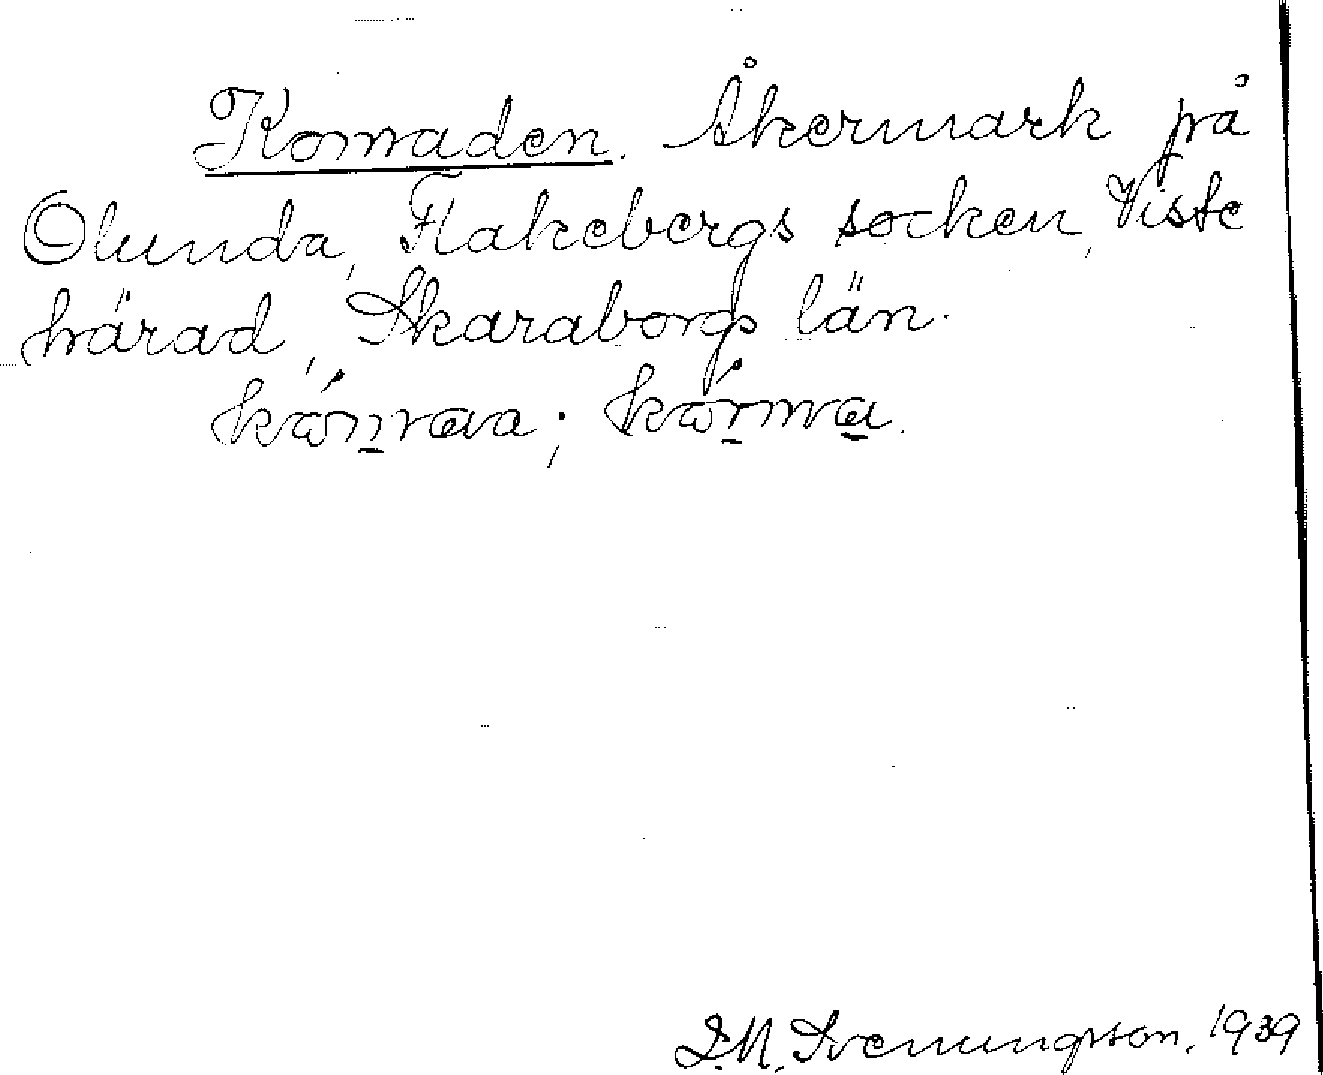 Kornaden. Åkermark på
Olunda, Flakebergs socken, Viste
härad, Skaraborgs län.
S.M. Svenungsson, 1939